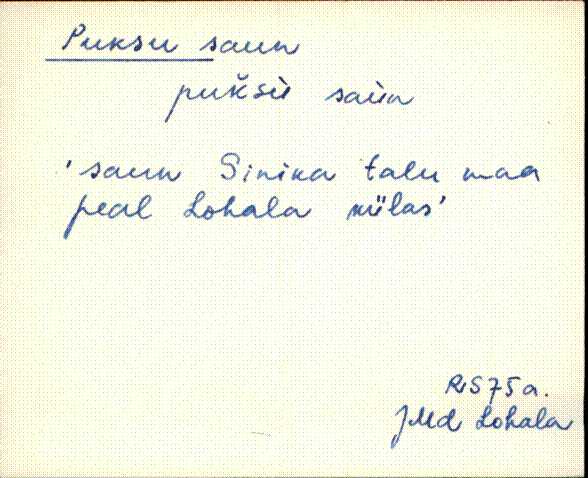 Puksu saun
pukšù saùn
'saun Sinika talu maa
peal Lohala külas'
RS 75 a.
JMd Lohala